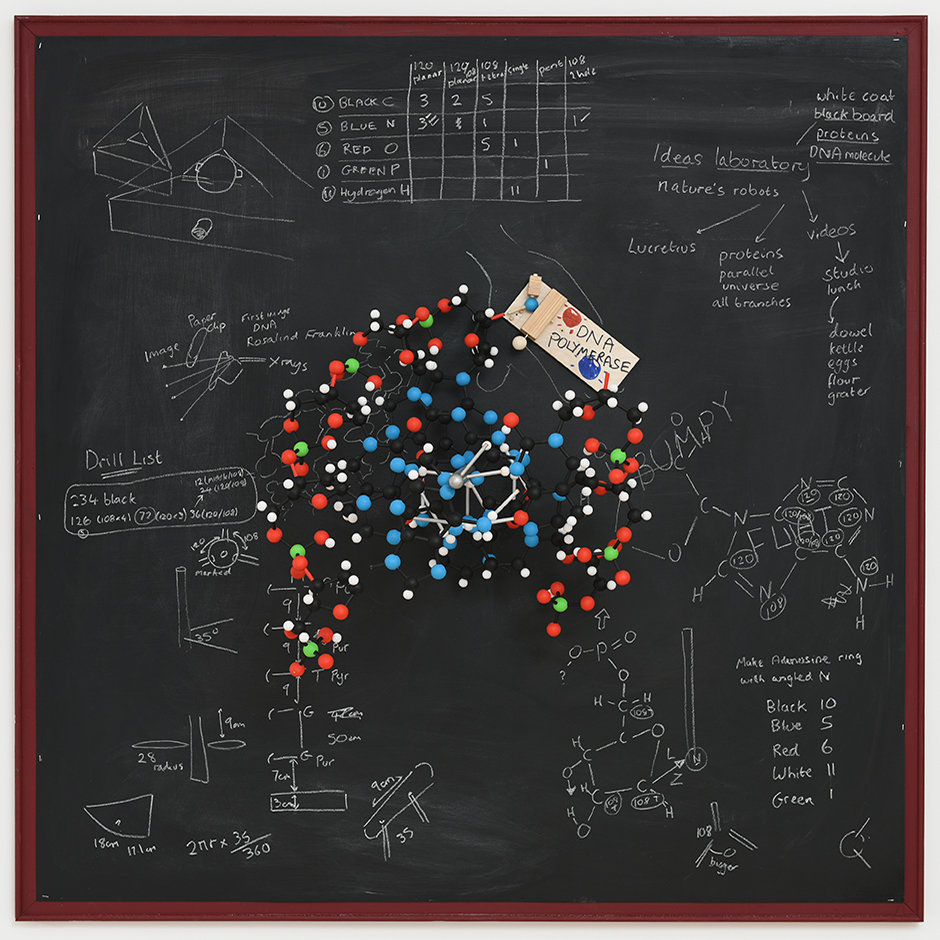 120 planar 120/108 planar 108 tetra single pent 108 2 hole
10 BLACK C 3 2 5
5 BLUE N 3 1
6 RED O 5 1
1 GREEN P 1
11 Hydrogen H 11
white coat
black board
proteins
DNA molecule
Ideas laboratory
nature's robots
Lucretius
proteins
parallel
universe
all branches
videos
studio
lunch
dowel
kettle
eggs
flour
grater
Paper
Clip
Image
X rays
First image
DNA
Rosalind Franklin
DNA
POLYMERASE
BUMPY
FLAT
Drill List
12 (120/108)
24 (120/108)
234 black
126 (108x4) 72 (120x3) 36 (120/108)
120 108
marked
35°
9
9 Pur
9 T Pyr
G
50cm
G Pur
7cm
3cm
9cm
28
radius
18cm 17.1cm
2πr x 35/360
9cm
35
O P O
?
O
H C H
108T
H C O
O C C
H 108T H
O
L
Z
N
C
O
N C
120 120
N C N
120
H C
N 108
C
120
N H
H
Make Adenosine ring
with angled N
Black 10
Blue 5
Red 6
White 11
Green 1
108
O
bigger